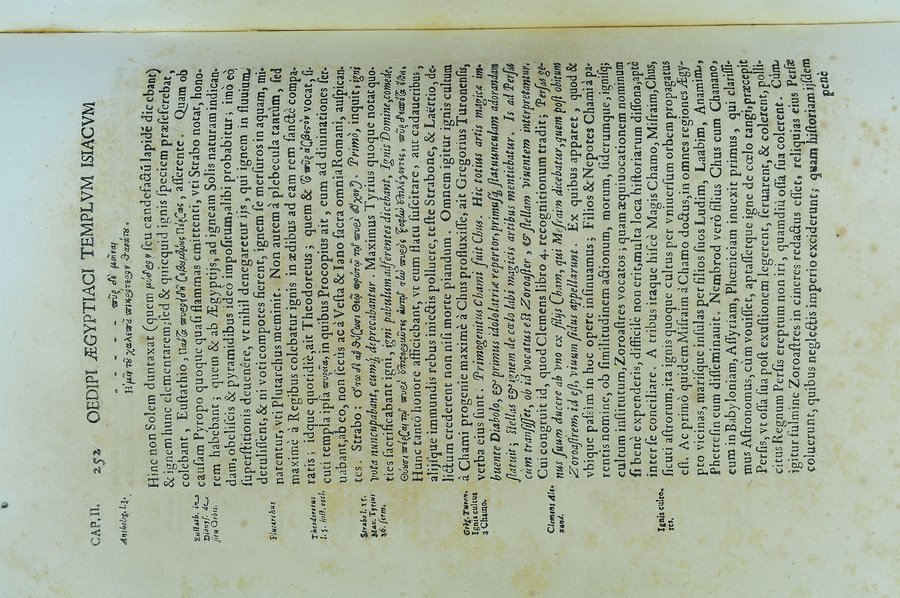 CAP. II. 252 OEDIPI ÆGYPTIACI TEMPLVM ISIACVM
Antholog. l. 3.
Hinc non Solem duntaxat (quem seu candefactũ lapidẽ dicebant)
& ignem hunc elementarem; sed & quicquid ignis speciem præseferebat,
colebant, Eustathio, asserente. Quam ob
causam Pyropo quoque quasi flammas emittenti, vti Strabo notat, hono-
rem habebant; quem & ab Ægyptijs, ad igneam Solis naturam indican-
dam, obeliscis & pyramidibus ideò impositum, alibi probabitur; imò eò
superstitionis deuenêre, vt nihil denegaretur ijs, qui ignem in fluuium
detulissent, & ni voti compotes fierent, ignem se mersuros in aquam, mi-
narentur, vti Plutarchus meminit. Non autem à plebecula tantum, sed
maximè à Regibus colebatur ignis in ædibus ad eam rem sanctè compa-
ratis; idque quotidiè, ait Theodoretus; quem & vocat, si-
cuti templa ipsa πυρεῖα, in quibus Procopius ait, cum ad diuinationes ser-
uabant, ab eo, non secus ac à Vesta & Iano sacra omnia Romani, auspican-
tes. Strabo: Primò, inquit, igni
vota nuncupabant, eumq́; deprecabantur. Maximus Tyrius quoque notat quo-
ties sacrificabant igni, ipsi igni pabulum afferentes dicebant, Ignis Domine, comede,
Hunc tanto honore afficiebant, vt eum flatu suscitare, aut cadaueribus,
alijsque immundis rebus iniectis polluere, teste Strabone, & Laërtio, de-
lictum crederent non nisi morte piandum. Omnem igitur ignis cultum
à Chami progenie maximè à Chus profluxisse, ait Gregorius Turonensis,
verba eius sunt. Primogenitus Chami fuit Chus. Hic totius artis magicæ im-
buente Diabolo, & primus idololatriæ repertor, primus statuunculam adorandam
statuit; stellas & ignem de cælo labi magicis artibus mentiebatur. Is ad Persas
transijsse, ob id vocatus est Zoroaster, & stellam viuentem interpretantur.
Cui congruit id, quod Clemens libro 4. recognitionum tradit; Persis ge-
nus suum ducere ab vno ex filijs Cham, qui Mesraim dicebatur, quem post obitum
Zoroastrem, id est, viuum sidus appellarunt. Ex quibus apparet, quod &
vbique passim in hoc opere insinuamus; Filios & Nepotes Chami à pa-
rentis nomine, ob similitudinem actionum, morum, siderumque, ignisq́;
cultum institutum, Zoroastres vocatos; quam æquiuocationem nominum
si benè expenderis, difficile non erit, multa loca historiarum dissona, aptè
inter se conciliare. A tribus itaque hisce Magis Chamo, Misraim, Chus,
secuti ignis origo fuit, ita ignis cultus per vniuersum orbem propagatus
est. Ac primò quidem Misraim à Chamo doctus, in omnes regiones Ægy-
pto vicinas, marisque insulas per filios suos Ludim, Laabim, Anamim,
Phetresim eum disseminauit. Nembrod verò filius Chus cum Chanano,
eum in Babyloniam, Assyriam, Phœniciam inuexit primus, qui clarissi-
mus Astronomus, cum vouisset, aptassetque igne de cœlo tangi, præcepit
Persis, vt ossa sua post exustionem legerent, seruarent, & colerent, polli-
citus Regnum Persis ereptum non iri, quamdiù ossa sua colerent. Cùm
igitur fulmine Zoroastres in cineres redactus esset, reliquias eius Persæ
coluerunt, quibus neglectis imperio exciderunt; quam historiam ijsdem
penè
Plutarchus
Theodoretus
l. 5. hist. eccl.
Strabo l. 15.
Max. Tyrius
26. serm.
Greg. Turon.
Ignis cultus
à Chamo.
Clemens Ale-
xand.
Ignis cultores.